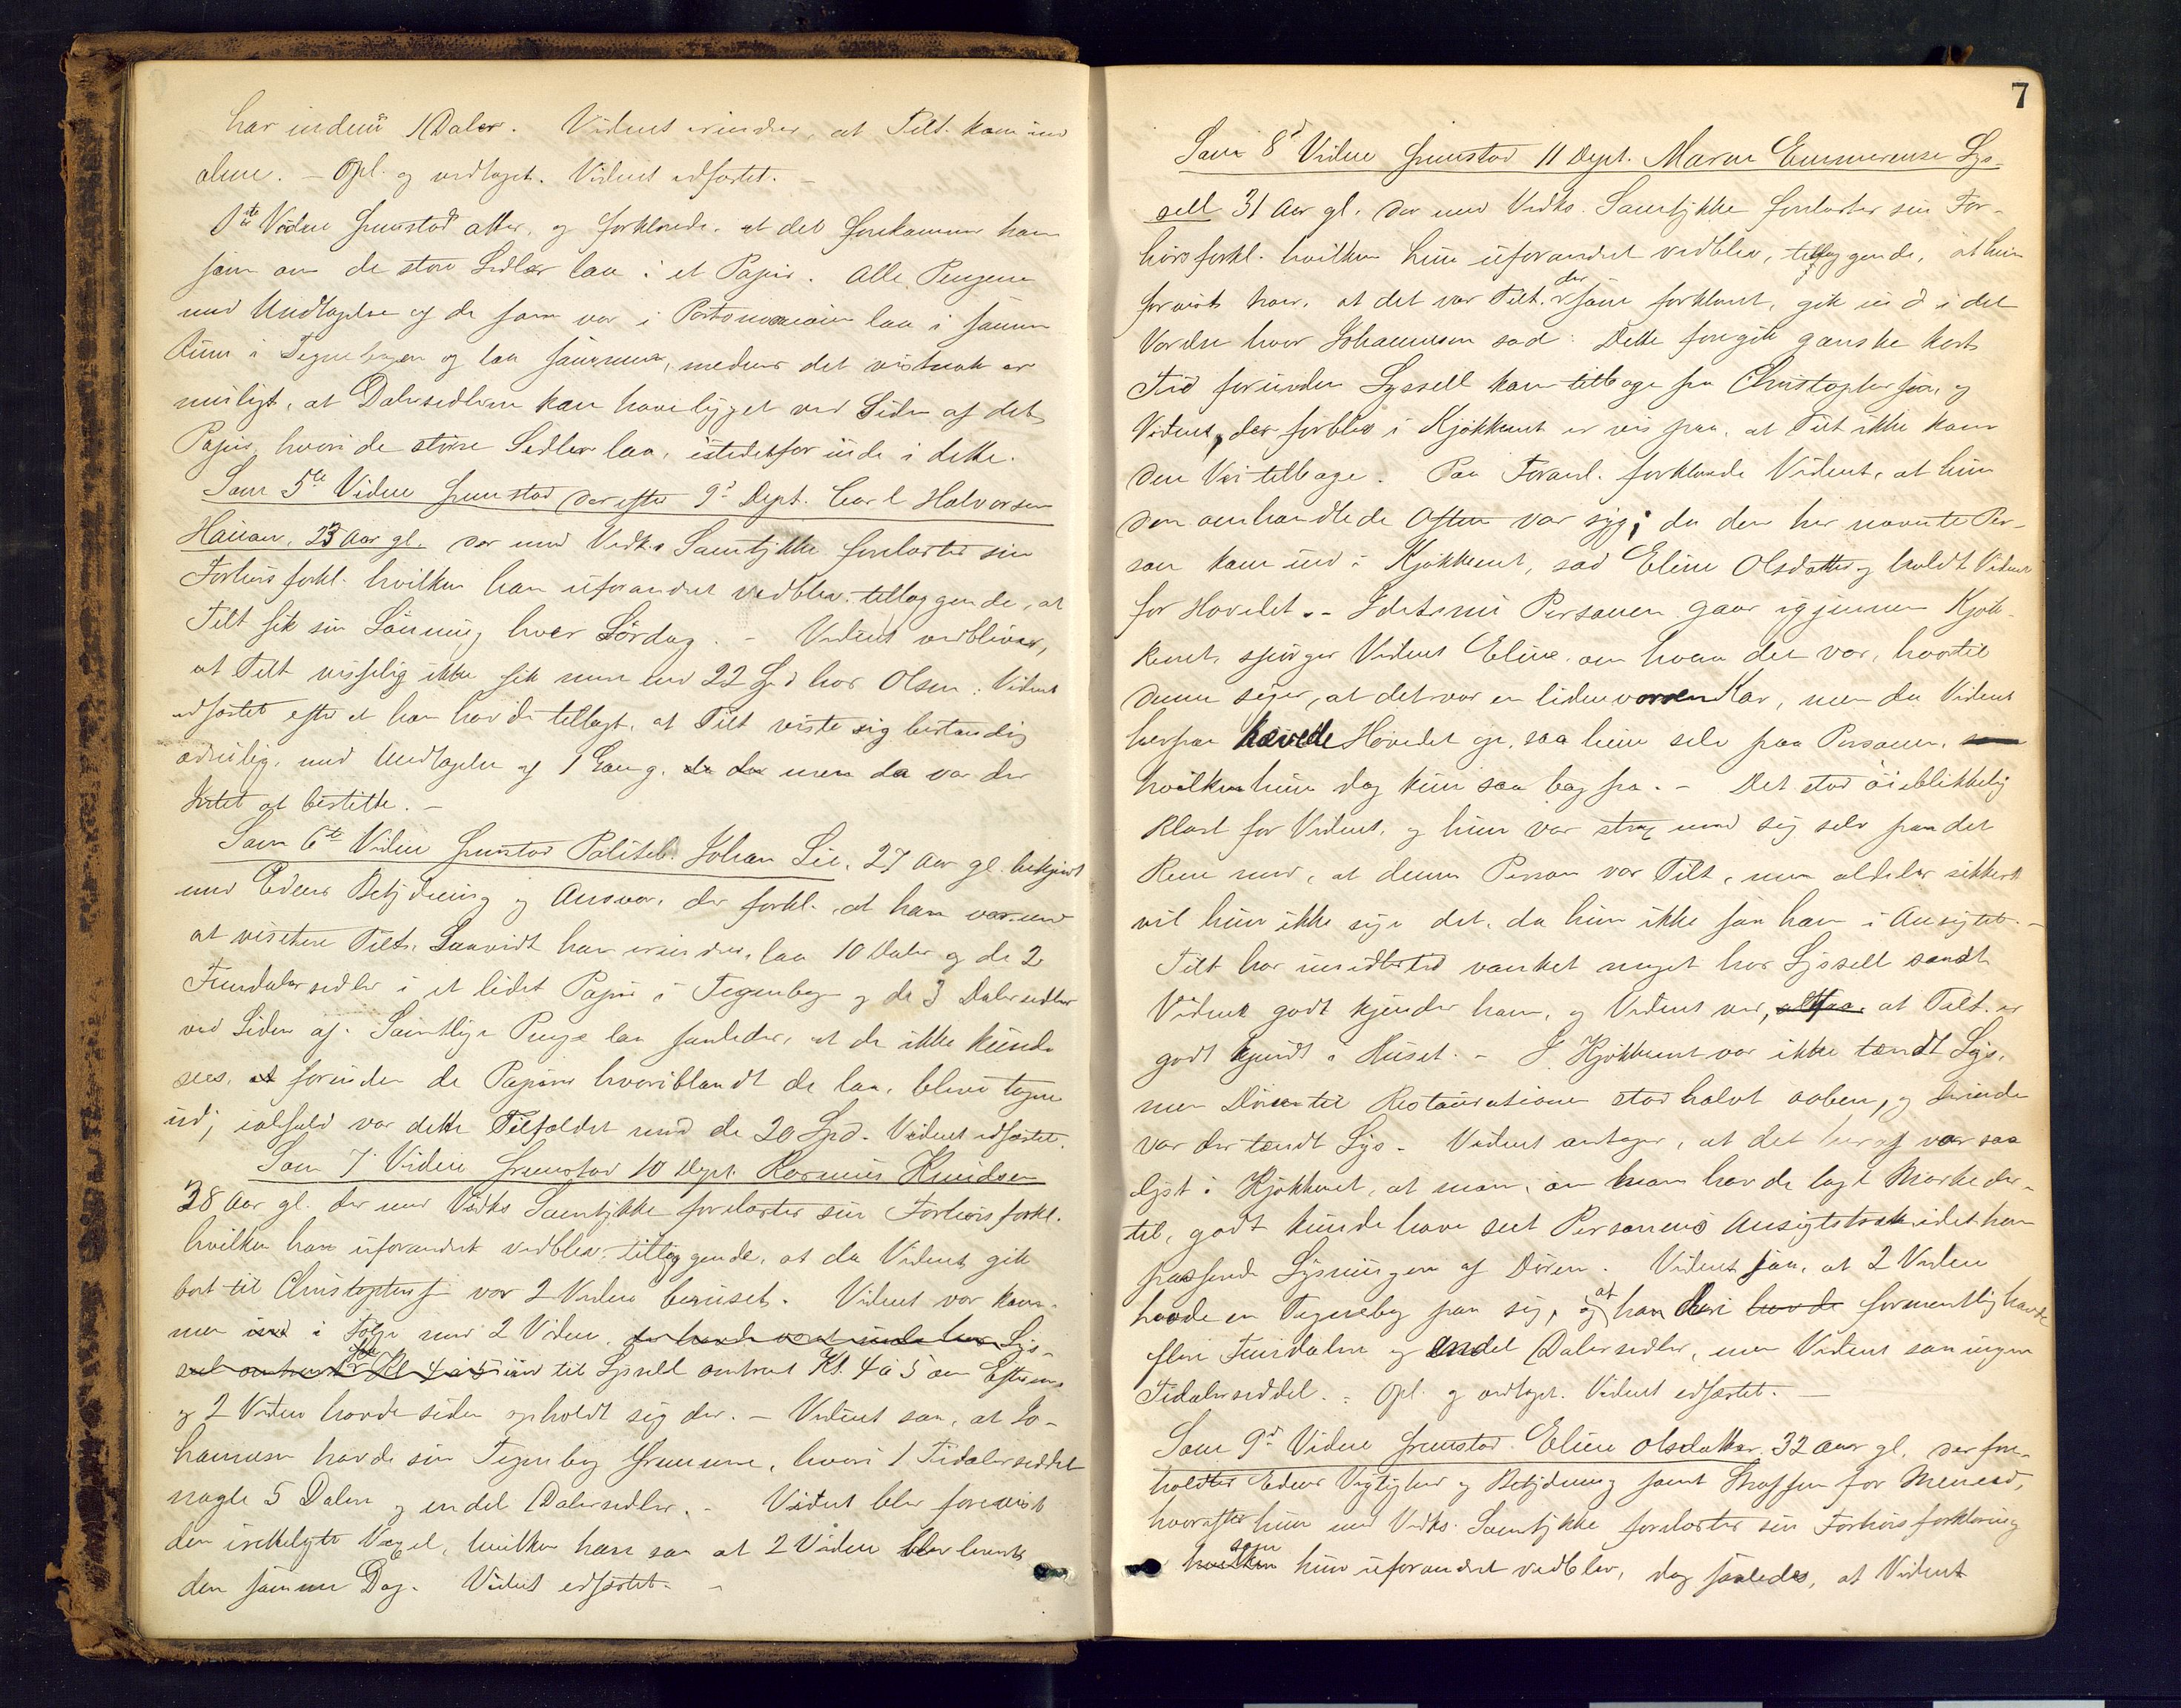 har endnu 1 Daler. Vidnet erindrer, at Tilt. kom ind
alene. – Opl. og vedtaget. Vidnet edfæstet. –
1ste Vidne fremstod atter, og forklarede, at det forekommer ham
som om de store Sedler laa i et Papir. Alle Pengene
med Undtagelse af de som var i Portemonaien laa i samme
Rum i Tegnebogen og laa sammen, medens det vistnok er
muligt, at Dalersedlerne kan have ligget ved Siden af det
Papir, hvori de større Sedler laa, istedetfor inde i dette.
Som 5te Vidne fremstod derefter 9d Dept. Carl Halvorsen
23 Aar gl. der med Vedk.s Samtykke forelæstes sin
Forhørsforkl. hvilken han uforandret vedblev, tillæggende, at
Tilt fik sin Lønning hver Lørdag. – Vidnet vedbliver,
at Tilt visselig ikke fik mere end 22 Spd hos Olsen. Vidnet
edfæstet efter at han havde tillagt, at Tilt viste sig bestandig
ædruelig, med Undtagelse af 1 Gang, da der men da var der
Intet at bestille. –
Som 6te Vidne fremstod Politib. Johan Lie, 27 Aar gl. bekjendt
med Edens Betydning og Ansvar, der forkl. at han var med
at visitere Tilt. Saavidt han erindrer, laa 10 Daler og de 2
Femdalersedler i et lidet Papir i Tegnebogen og de 3 Dalersedler
ved Siden af. Samtlige Penge laa saaledes, at de ikke kunde
sees, at forinden de Papirer hvoriblandt de laa, bleve tagne
ud; ialfald var dette Tilfældet med de 20 Spd. Vidnet edfæstet.
Som 7d Vidne fremstod 10 Dept. Rasmus Knudsen
38 Aar gl. der med Vedks Samtykke forelæstes sin Forhørsforkl.
hvilken han uforandret vedblev, tillæggende, at da Vidnet gik
bort til Christophers var 2 Vidne beruset. Vidnet var kom-
men ind i Følge med 2 Vidne, der havde været inde hos Lys-
sel omtrent Kl 4 a 5 ind til Lyssell omtrent Kl. 4 a 5 om Efterm.
og 2 Vidne havde siden opholdt sig der. – Vidnet saa, at Jo-
hannesen havde sin Tegnebog fremme, hvori 1 Tidalerseddel
nogle 5 Dalere og endel Dalersedler. – Vidnet blev forevist
den irettelagte Vexel, hvilken han saa at 2 Vidne
den samme Dag. Vidnet edfæstet. –
7
Som 8d Vidne fremstod 11 Dept. Maren Emmerense Lys-
sell 31 Aar gl. der med Vedks. Samtykke forelæstes sin For-
hørsforkl. hvilken hun uforandret vedblev, tillæggende, at hun
forvist har, at det var Tilt. der som forklaret, gik ind i det
Værelse hvor Johannesen sad. Dette foregik ganske kort
Tid forinden Lyssell kom tilbage fra Christophersen, og
Vidnet, der forblev i Kjøkkenet er vis paa, at Tilt ikke kom
den Vei tilbage. Paa Foranl. forklarede Vidnet, at hun
den omhandlede Aften var syg; da den her nævnte Per-
son kom ind i Kjøkkenet, sad Eline Olsdatter og holdt Vidnet
for Hovedet. – Idetsamme Personen gaar igjennem Kjøk-
kenet, spørger Vidnet Eline, om hvem det var, hvortil
denne siger, at det var en liden voxen Kar, men da Vidnet
herpaa hævede Hovedet op, saa hun selv paa Personen, som
hvilken hun dog kun saa bagfra. – Det stod øieblikkelig
klart for Vidnet, og hun var strax med sig selv paa det
Rene med, at denne Person var Tilt, men aldeles sikkert
vil hun ikke sige det, da hun ikke saa ham i Ansigtet. –
Tilt har imidlertid vanket meget hos Lyssell samt
Vidnet godt kjender ham, og Vidnet ved, altsaa at Tilt. er
godt kjendt i Huset. – I Kjøkkenet var ikke tændt Lys,
men Døren til Restaurationen stod halvt aaben, og derinde
var der tændt Lys. – Vidnet antager, at det heraf var saa
lyst i Kjøkkenet, at man, om man havde lagt Mærke der-
til, godt kunde have seet Personens Ansigtstræk idet han
passerede Lysningen af Døren. Vidnet saa, at 2 Vidne
havde en Tegnebog paa sig, og at han deri havde formentlig havde
flere Femdalere og endel Dalersedler, men Vidnet saa ingen
Tidalerseddel. – Opl. og vedtaget. Vidnet edfæstet. –
Som 9d Vidne fremstod Eline Olsdatter 32 Aar gl. der fore-
holdtes Edens Vigtighed og Betydning samt Straffen for Meneed,
hvorefter hun med Vedks. Samtykke forelæstes sin Forhørsforklaring
hvilken som hun uforandret vedblev, dog saaledes, at Vidnet